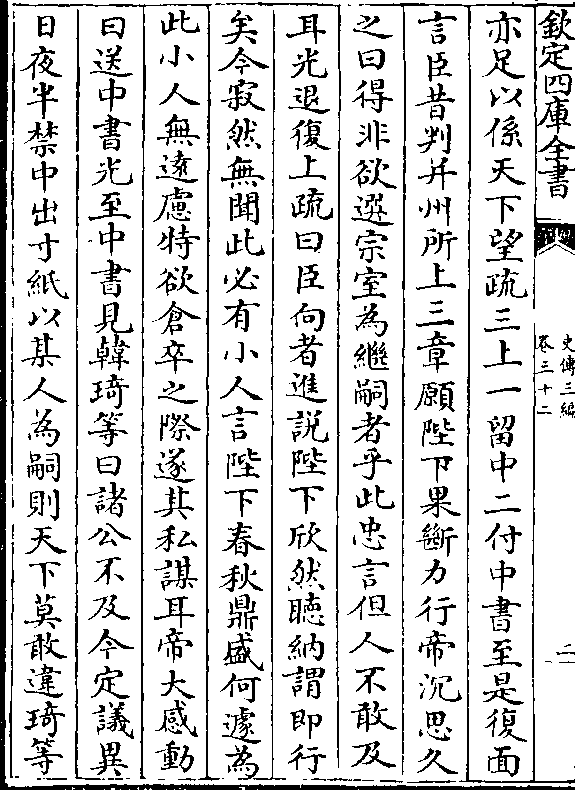 欽定四庫全書
史傳三編
卷三十二
二
亦足以係天下望疏三上一留中二付中書至是復面
言臣昔判并州所上三章願陛下果斷力行帝沉思久
之曰得非欲選宗室為繼嗣者乎此忠言但人不敢及
耳光退復上疏曰臣向者進說陛下欣然聽納謂即行
矣今寂然無聞此必有小人言陛下春秋鼎盛何遽為
此小人無遠慮特欲倉卒之際遂其私謀耳帝大感動
曰送中書光至中書見韓琦等曰諸公不及今定議異
日夜半禁中出寸紙以某人為嗣則天下莫敢違琦等